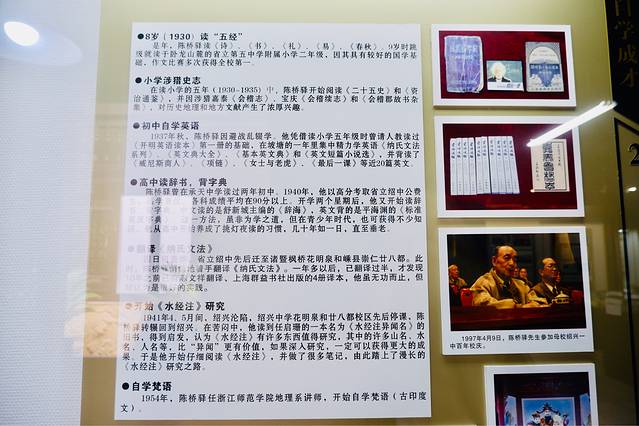 ●8岁（1930）读“五经”
是年，陈桥驿读《诗》、《书》、《礼》、《易》、《春秋》。9岁时跳
级就读于卧龙山麓的省立第五中学附属小学二年级，因其具有较好的国学基
础，作文比赛多次获得全校第一。
●小学涉猎史志
在读小学的五年（1930-1935）中，陈桥驿开始阅读《二十五史》和《资
治通鉴》，并因涉猎嘉泰《会稽志》、宝庆《会稽续志》和《会稽郡故书杂
集》，对历史地理和地方文献产生了浓厚兴趣。
●初中自学英语
1937年秋，陈桥驿因避战乱辍学。他凭借读小学五年级时曾请人教读过
《开明英语读本》第一册的基础，在坡塘的一年里集中精力学英语《纳氏文法
系列》、《英文典大全》、《基本英文典》和《英文短篇小说选》，并背读了
《威尼斯商人》、《项链》、《女士与老虎》、《最后一课》等近20篇英文。
●高中读辞书，背字典
陈桥驿曾在承天中学读过两年初中。1940年，他以高分考取省立绍中公费
各科成绩平均在90分以上。开学两个星期后，他又开始读辞
文读的是舒新城主编的《辞海》，英文背的是平海渊的《标准
一方法，虽非为学之道，但在青少年时代，也可获得不少知
养成了挑灯夜读的习惯，几十年如一日，直至垂老。
●翻译《纳氏文法》
省立绍中先后迁至诸暨枫桥花明泉和嵊县崇仁廿八都。此
时，陈桥驿
着手翻译《纳氏文法》。一年多以后，已翻译过半，才发现
翻译、上海群益书社出版的4册译本，他虽无功而止，但
的实践。
●开始《水经注》研究
1941年4、5月间，绍兴沦陷，绍兴中学花明泉和廿八都校区先后停课，陈
桥驿转辗回到绍兴。在苦闷中，他读到任启珊的一本名为《水经注异闻名》的
旧书，得到启发，认为《水经注》有许多东西值得研究，其中的许多山名、水
名、人名等，比“异闻”更有价值，如果深入研究，一定可以获得更大的成
果。于是他开始仔细阅读《水经注》，并做了很多笔记，由此踏上了漫长的
《水经注》研究之路。
●自学梵语
1954年，陈桥驿任浙江师范学院地理系讲师，开始自学梵语（古印度
文）。
1997年4月9日，陈桥驿先生参加母校绍兴一
中百年校庆。